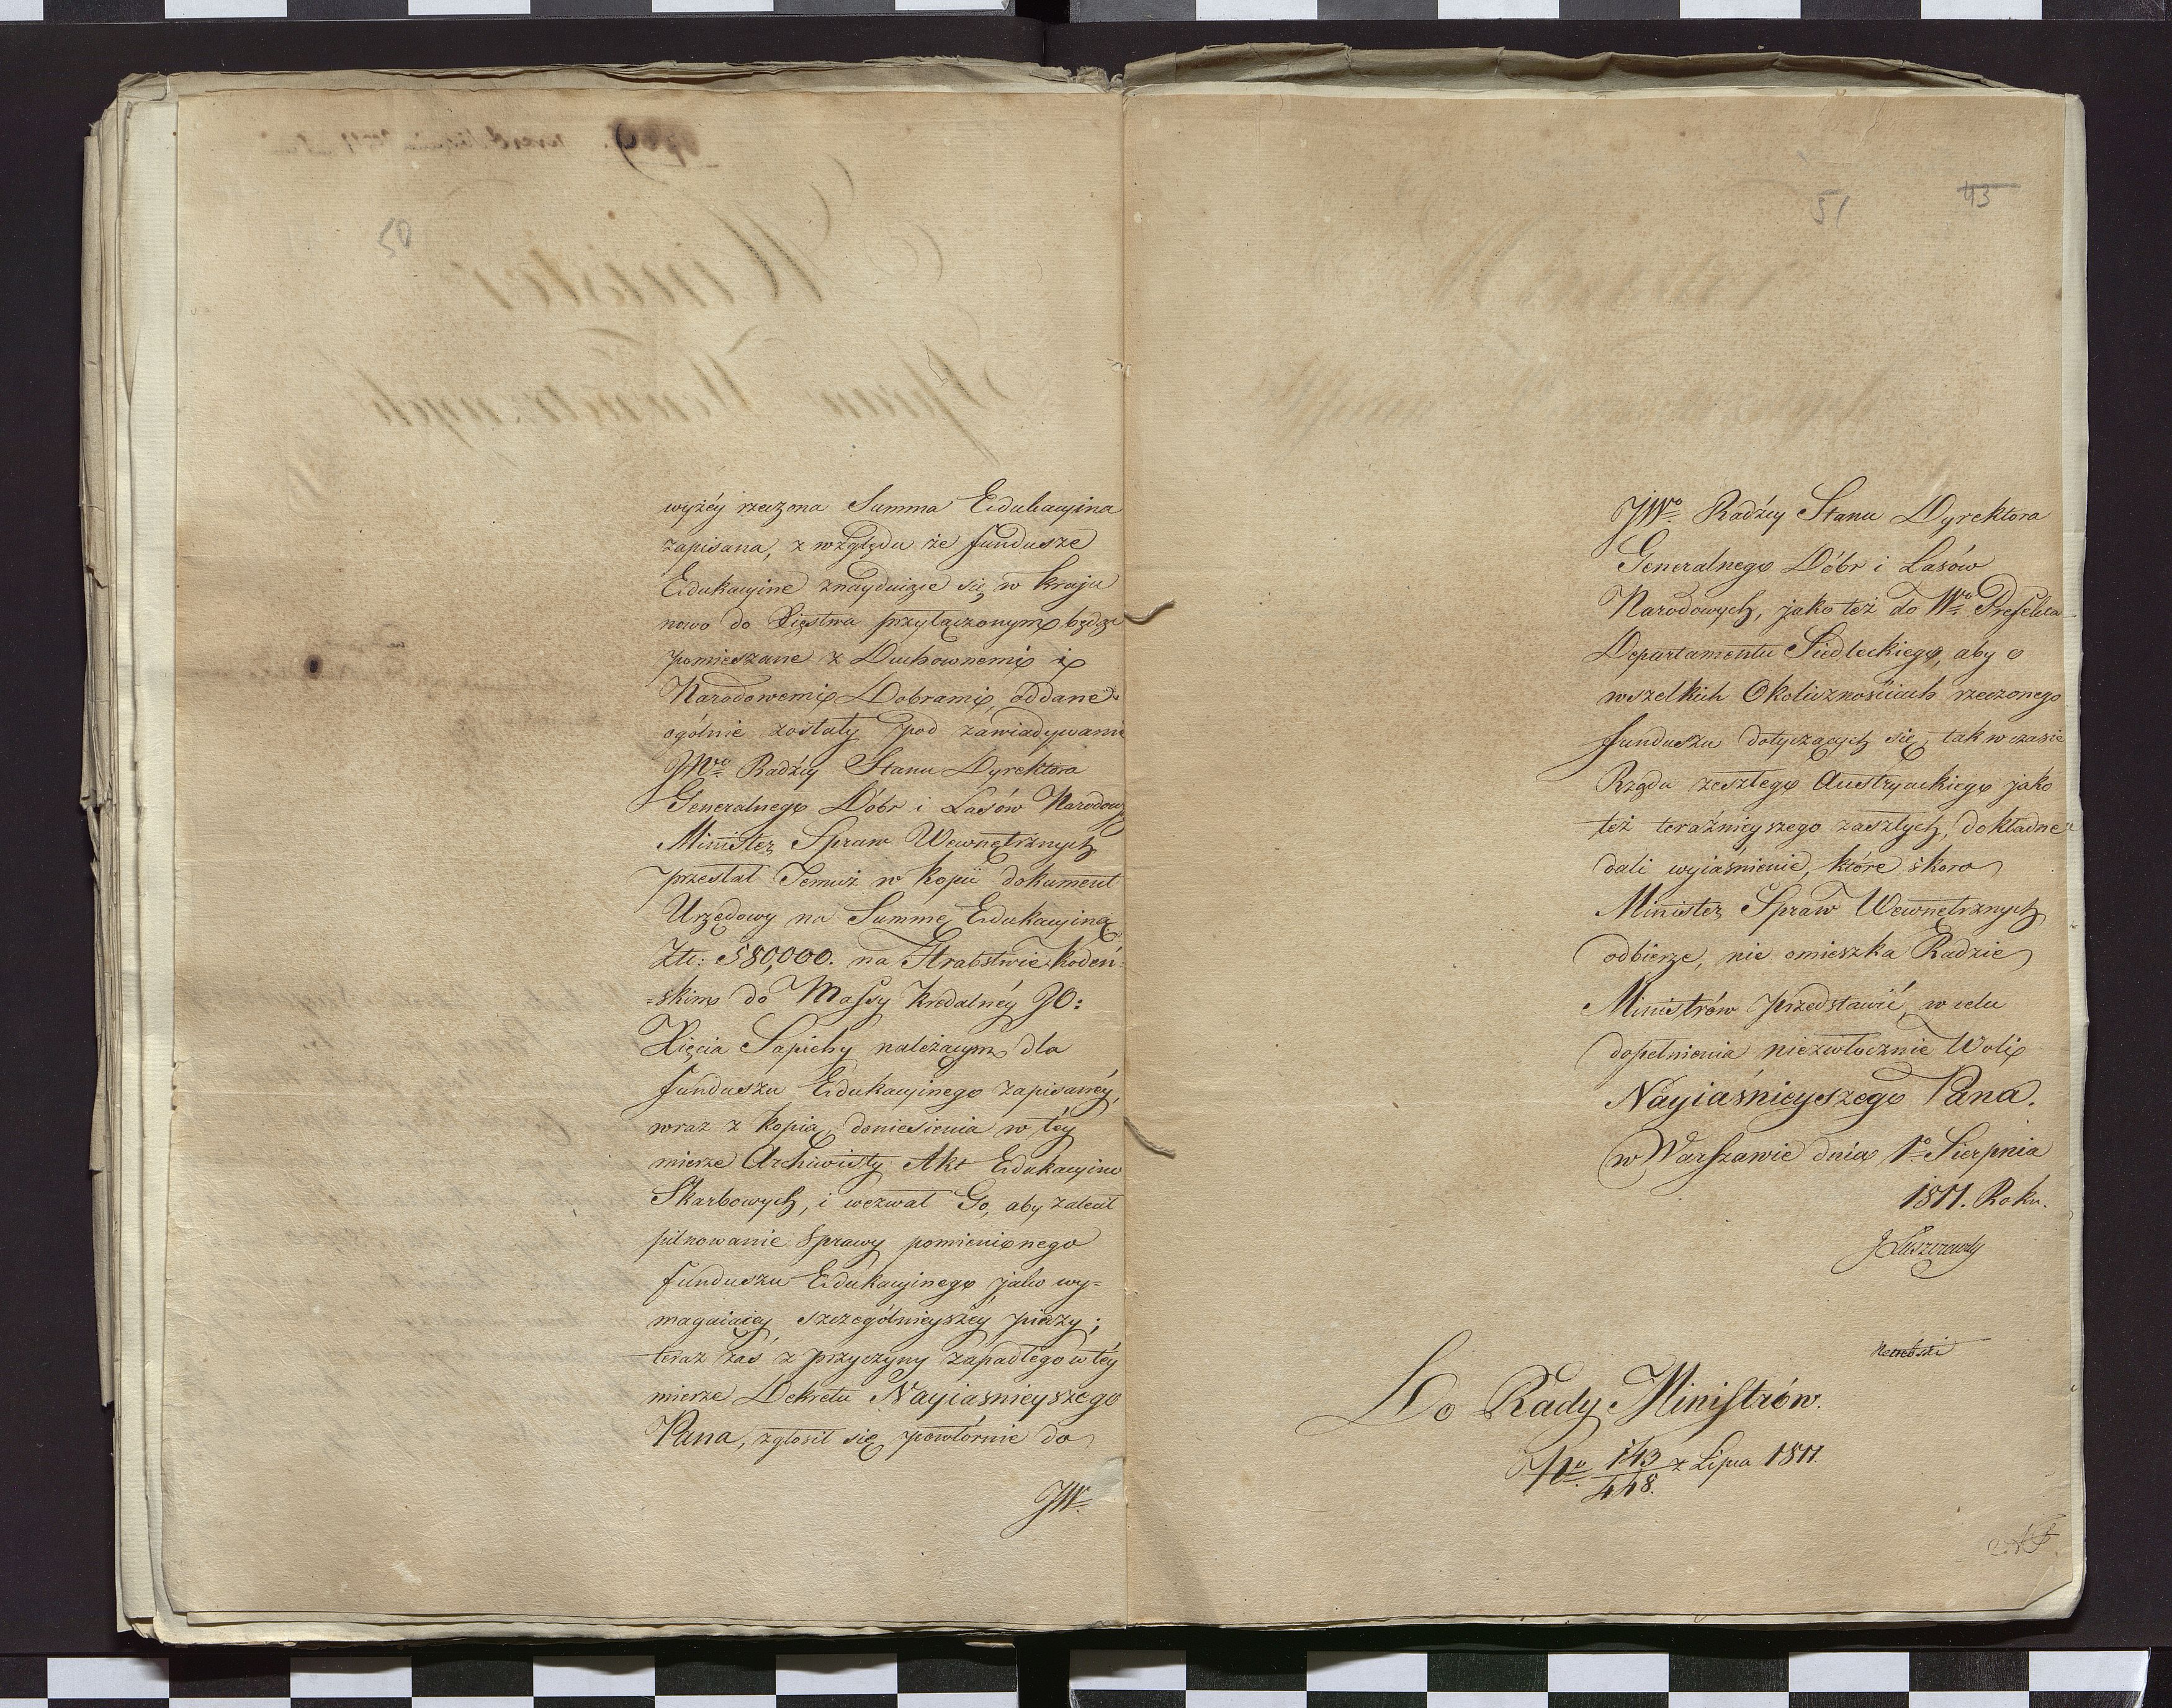 50
wyżéy rzeczona Summa Edukacyina
zapisana, z względu że fundusze
Edukacyine znayduiące się w kraju
nowo do Xięstwa przyłączonym będąc
pomieszane z Duchownemi i
Narodowemi Dobrami, oddane
ogólnie zostały pod zawiadywanie
JWo Radźcy Stanu Dyrektora
Generalnego Dóbr i Lasów Narodow:
Minister Spraw Wewnętrznych
przesłał Temuż w kopii dokument
Urzędowy na Summę Edukacyiną
Złł: 580,000. na Hrabstwie Kodeń-
=skim do Massy Kredalnéy JO:
Xięcia Sapiehy należącym dla
funduszu Edukacyinego zapisanéy,
wraz z kopią doniesienia w téy
mierze Archiwisty Akt Edukacyino
Skarbowych, i wezwał Go, aby zalecił
pilnowanie Sprawy pomienionego
funduszu Edukacyinego jako wy=
magaiącéy szczególnieyszéy pieczy;
teraz zaś z przyczyny zapadłego w téy
mierze Dekretu Nayiaśnieyszego
Pana, zgłosił się powtórnie do
JW.
51 43
JWo. Radźcy Stanu Dyrektora
Generalnego Dóbr i Lasów
Narodowych, jako też do Wo. Prefekta
Departamentu Siedleckiego, aby o
wszelkich Okolicznościach rzeczonego
funduszu dotyczących się, tak w czasie
Rządu zeszłego Austryackiego jako
też teraźnieyszego zaszłych, dokładne
dali wyiaśnienie, które skoro
Minister Spraw Wewnętrznych
odbierze, nie omieszka Radzie
Ministrów przedstawić, w celu
dopełnienia niezwłocznie Woli
Nayiaśnieyszego Pana.
w Warszawie dnia 1o Sierpnia
1811. Roku.
J Łuszczewski
Do Rady Ministrów.
No. 143/448. z Lipca 1811.